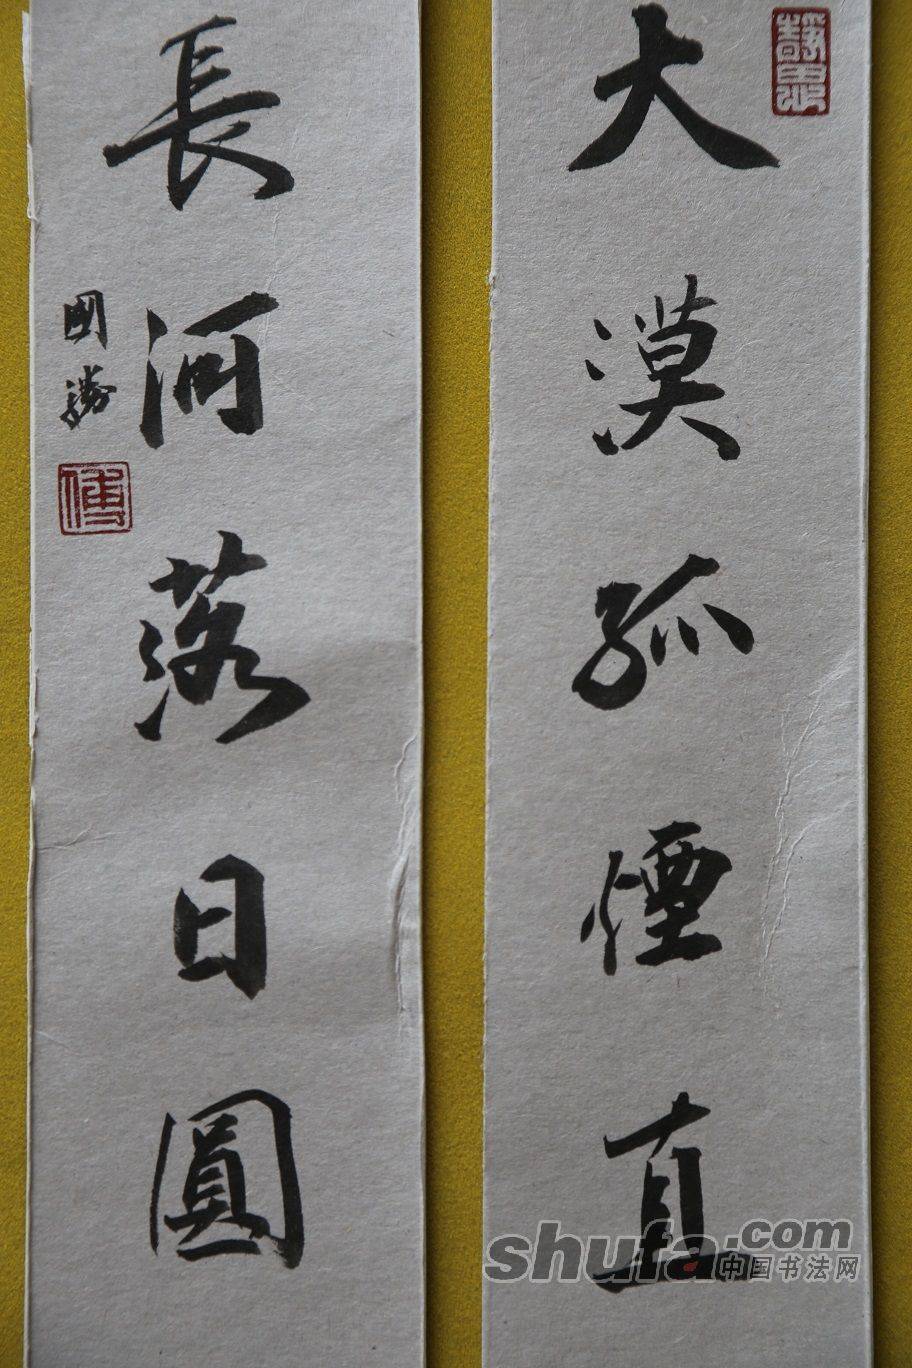 大漠孤煙直
長河落日圓
國勝
傅
shufa.com
中国书法网